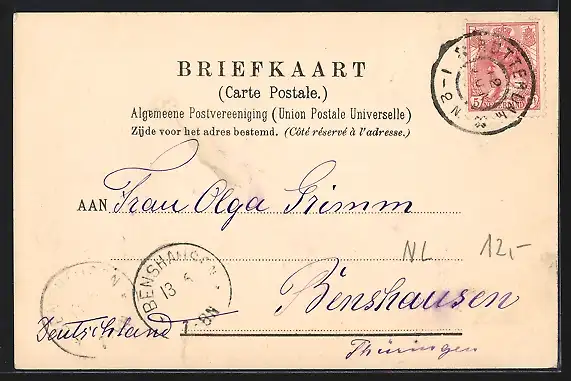 BRIEFKAART
(Carte Postale.)
Algemeene Postvereeniging (Union Postale Universelle)
Zijde voor het adres bestemd. (Côté réservé à l'adresse.)
AAN Frau Olga Grimm
NL 12,-
BENSHAUSEN
13 6
7-8N
Benshausen
Deutschland
Thüringen
ROTTERDAM